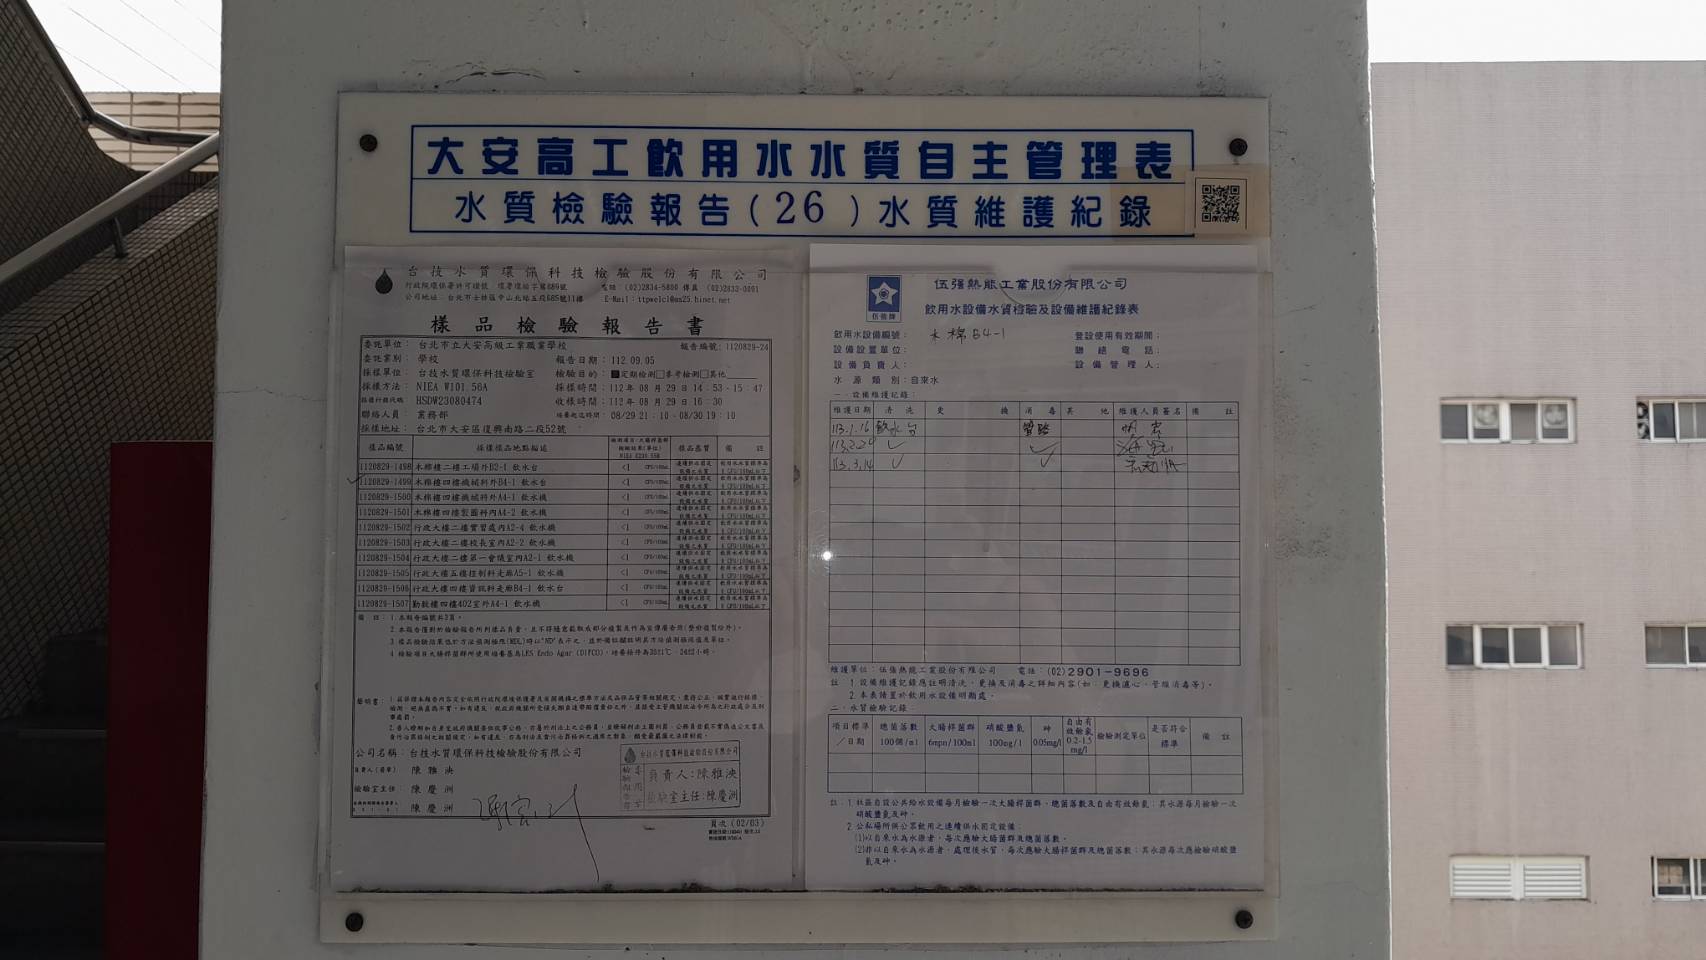 大安高工飲用水水質自主管理表
水質檢驗報告(26)水質維護紀錄
台技水質環保科技檢驗股份有限公司
行政院環保署許可證號 環署環檢字第089號 電話:(02)2834-5800 傳真 (02)2832-0091
公司地址:台北市士林區中山北路五段685號11樓 E-Mail:ttpwelcl@ms25.hinet.net
樣品檢驗報告書
委託單位: 台北市立大安高級工業職業學校 報告編號:1120829-24
委託案別: 學校 報告日期:112.09.05
採樣單位: 台技水質環保科技檢驗室 檢驗目的:■定期檢測□參考檢測□其他
採樣方法: NIEA W101.56A 採樣時間:112年 08 月 29 日 14:53-15:47
採樣行程代碼 HSDW23080474 收樣時間:112年 08 月 29 日 16:30
聯絡人員 業務部 培養起迄時間:08/29 21:10-08/30 19:10
採樣地址: 台北市大安區復興南路二段52號
樣品編號 採樣樣品地點描述 樣品基質 備 註
1120829-1498 木棉樓二樓工場外B2-1 飲水台 <1 CFU/100mL
1120829-1499 木棉樓四樓機械科外B4-1 飲水台 <1 CFU/100mL
1120829-1500 木棉樓四樓機械科外A4-1 飲水機 <1 CFU/100mL
1120829-1501 木棉樓四樓製圖科內A4-2 飲水機 <1 CFU/100mL
1120829-1502 行政大樓二樓實習處內A2-4 飲水機 <1 CFU/100mL
1120829-1503 行政大樓二樓校長室內A2-2 飲水機 <1 CFU/100mL
1120829-1504 行政大樓二樓第一會議室內A2-1 飲水機 <1 CFU/100mL
1120829-1505 行政大樓五樓控制科走廊A5-1 飲水機 <1 CFU/100mL
1120829-1506 行政大樓四樓資訊科走廊B4-1 飲水台 <1 CFU/100mL
1120829-1507 勤毅樓四樓402室外A4-1 飲水機 <1 CFU/100mL
備 註:1 本報告編號共3頁。
2 本報告僅對於檢驗報告所列樣品負責,且不得隨意截取或部分複製及作為宣傳廣告用(整份複製除外)。
3 樣品檢驗結果低於方法偵測極限(MDL)時以"ND"表示之,並於備註欄註明其方法偵測極限值及單位。
4 檢驗項目大腸桿菌群所使用培養基為LES Endo Agar (DIFCO),培養條件為35±1℃,24±2小時。
公司名稱:台技水質環保科技檢驗股份有限公司
負責人(簽章) 陳雅泱
檢驗室主任 陳慶洲
陳慶洲
台技水質環保科技檢驗股份有限公司
負責人:陳雅泱
檢驗室主任:陳慶洲
頁次 (02/03)
伍強牌
伍強熱能工業股份有限公司
飲用水設備水質檢驗及設備維護紀錄表
飲用水設備編號: 木棉B4-1 登設使用有效期間:
設備設置單位: 聯絡電話:
設備負責人: 設備管理人:
水源類別:自來水
一、設備維護記錄:
維護日期 清洗 更換 消毒 其他 維護人員簽名 備註
113.1.16 飲水台 管路
113.2.29 ✓ ✓
113.3.14 ✓ ✓
維護單位:伍強熱能工業股份有限公司 電話:(02)2901-9696
註 1 設備維護記錄應註明清洗、更換及消毒之詳細內容(如:更換濾心、管線消毒等)。
2. 本表請置於飲用水設備明顯處。
二、水質檢驗記錄:
項目標準/日期 總菌落數 100個/ml 大腸桿菌群 6mpn/100ml 硝酸鹽氮 100mg/l 砷 0.05mg/l 自由有效餘氯 0.2-1.5 mg/l 檢驗測定單位 是否符合標準 備註
註:1 社區自設公共給水設備每月檢驗一次大腸桿菌群、總菌落數及自由有效餘氯;其水源每月檢驗一次
硝酸鹽氮及砷。
2 公私場所供公眾飲用之連續供水固定設備:
(1)以自來水為水源者,每次應驗大腸桿菌群及總菌落數。
(2)非以自來水為水源者,處理後水質,每次應驗大腸桿菌群及總菌落數;其水源每次應檢驗硝酸鹽
氮及砷。